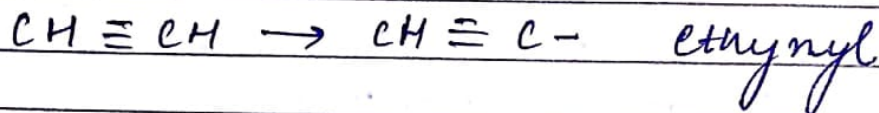 CH ≡ CH → CH ≡ C - ethynyl